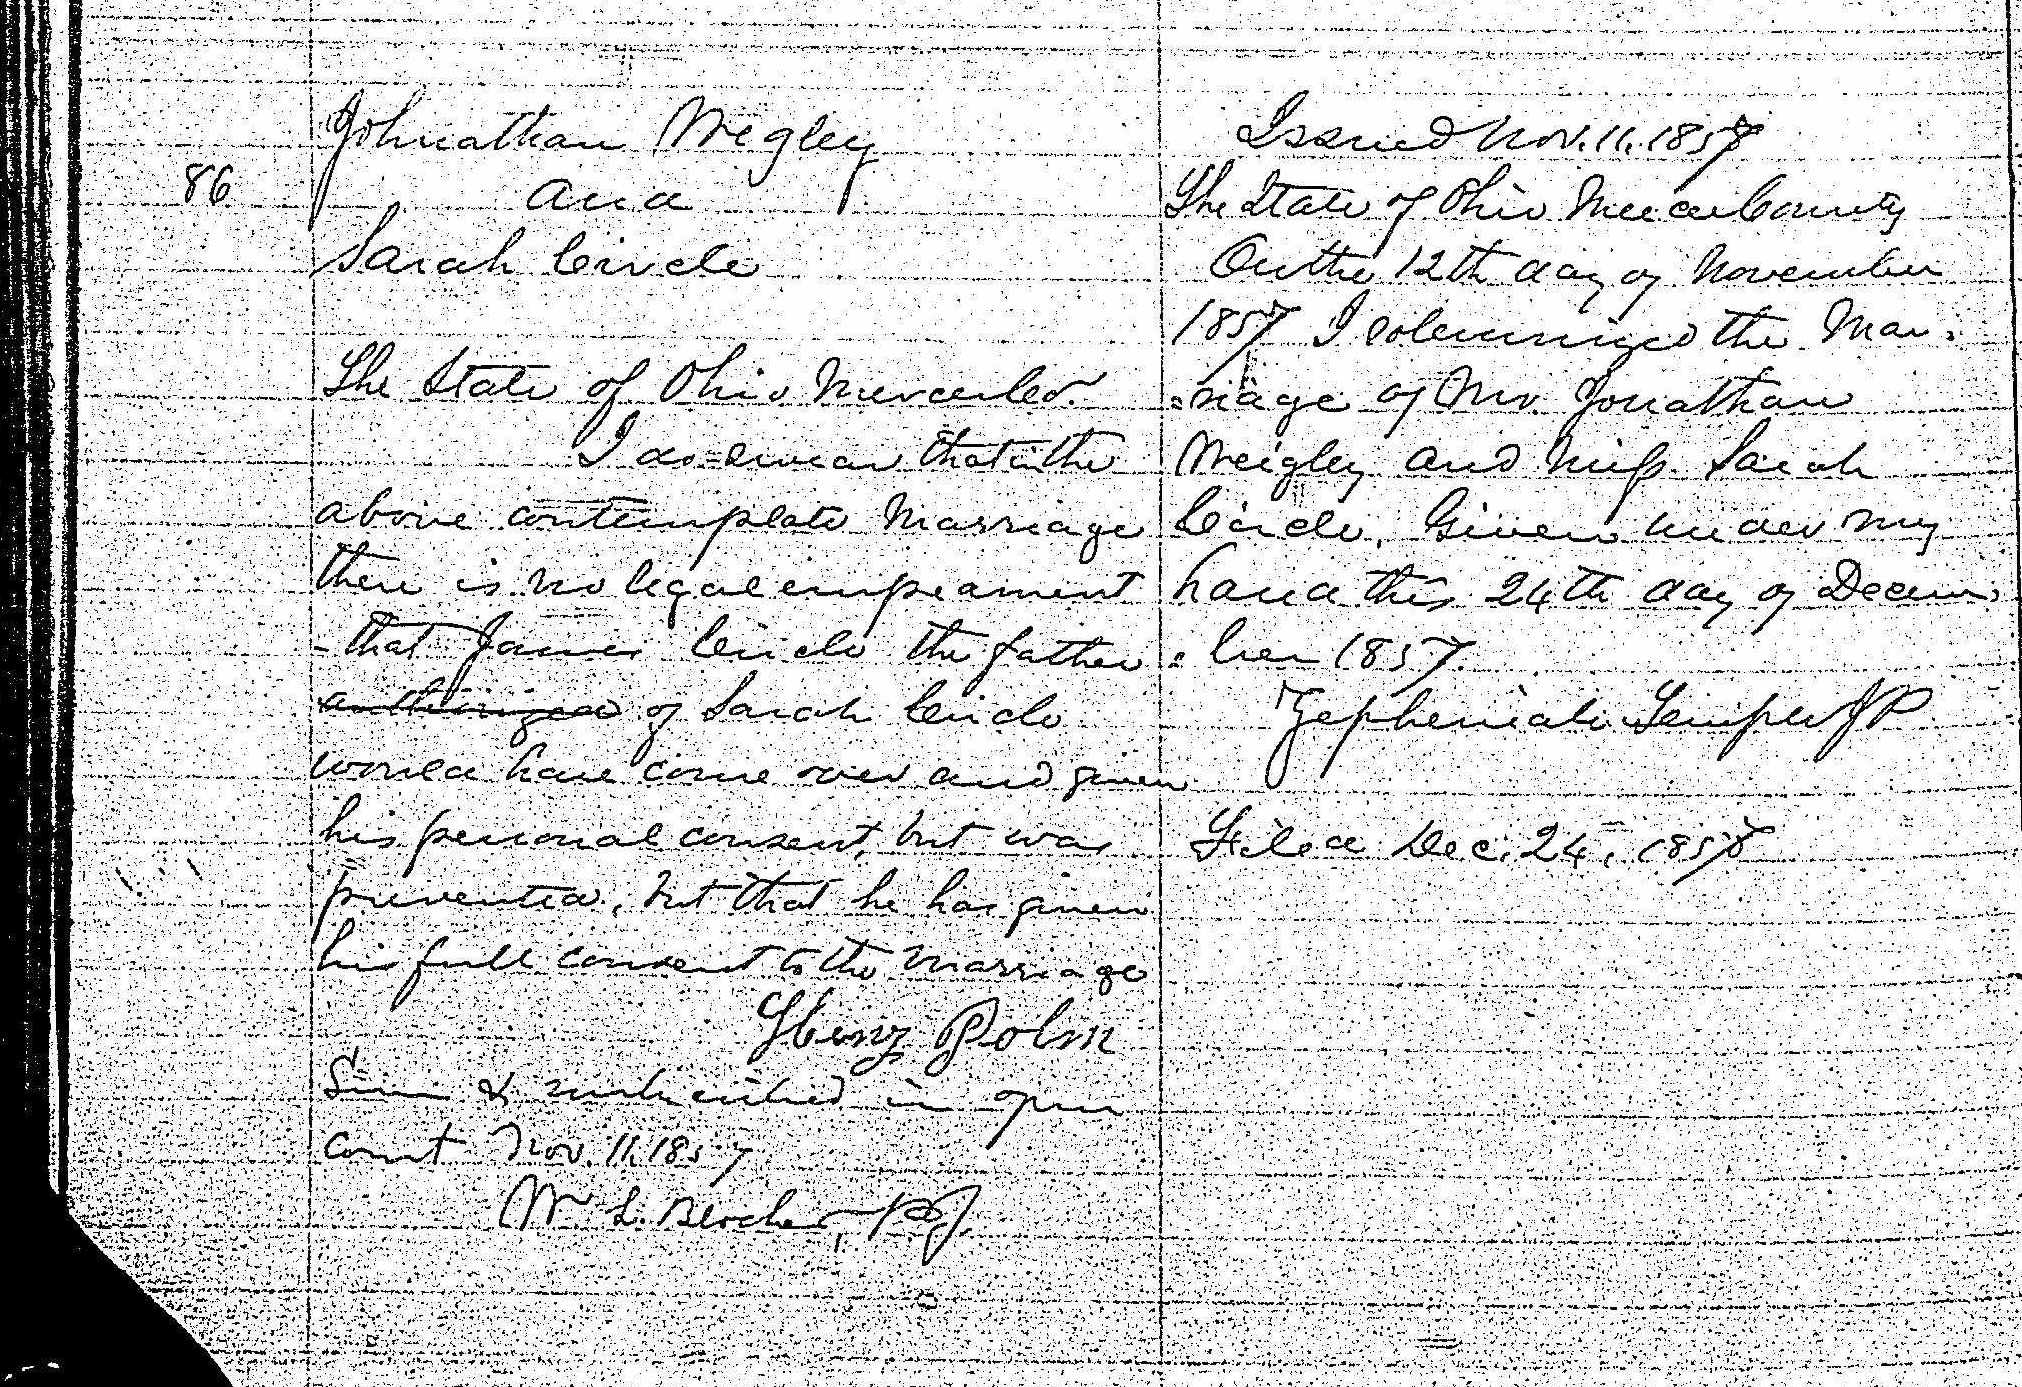 86
Johnathan Wegley
and
Sarah Circle
The State of Ohio Mercer Co.
I do swear that in the
above contemplate Marriage
there is no legal empeament
that James Circle the father
authorized of Sarah Circle
would have come over and given
his personal consent, but was
prevented, but that he has given
his full consent to the Marriage
Polm
& subscribed in open
court Nov. 11, 1857
Wm L. Blocher, PJ.
Issued Nov. 11, 1857
The State of Ohio Mercer County
On the 12th day of November
1857 I solemnized the Mar=
=riage of Mr. Jonathan
Weigley and Miss Sarah
Circle. Given under my
hand this 24th day of Decem=
=ber 1857.
Zepheniah Temple JP
Filed Dec. 24, 1857